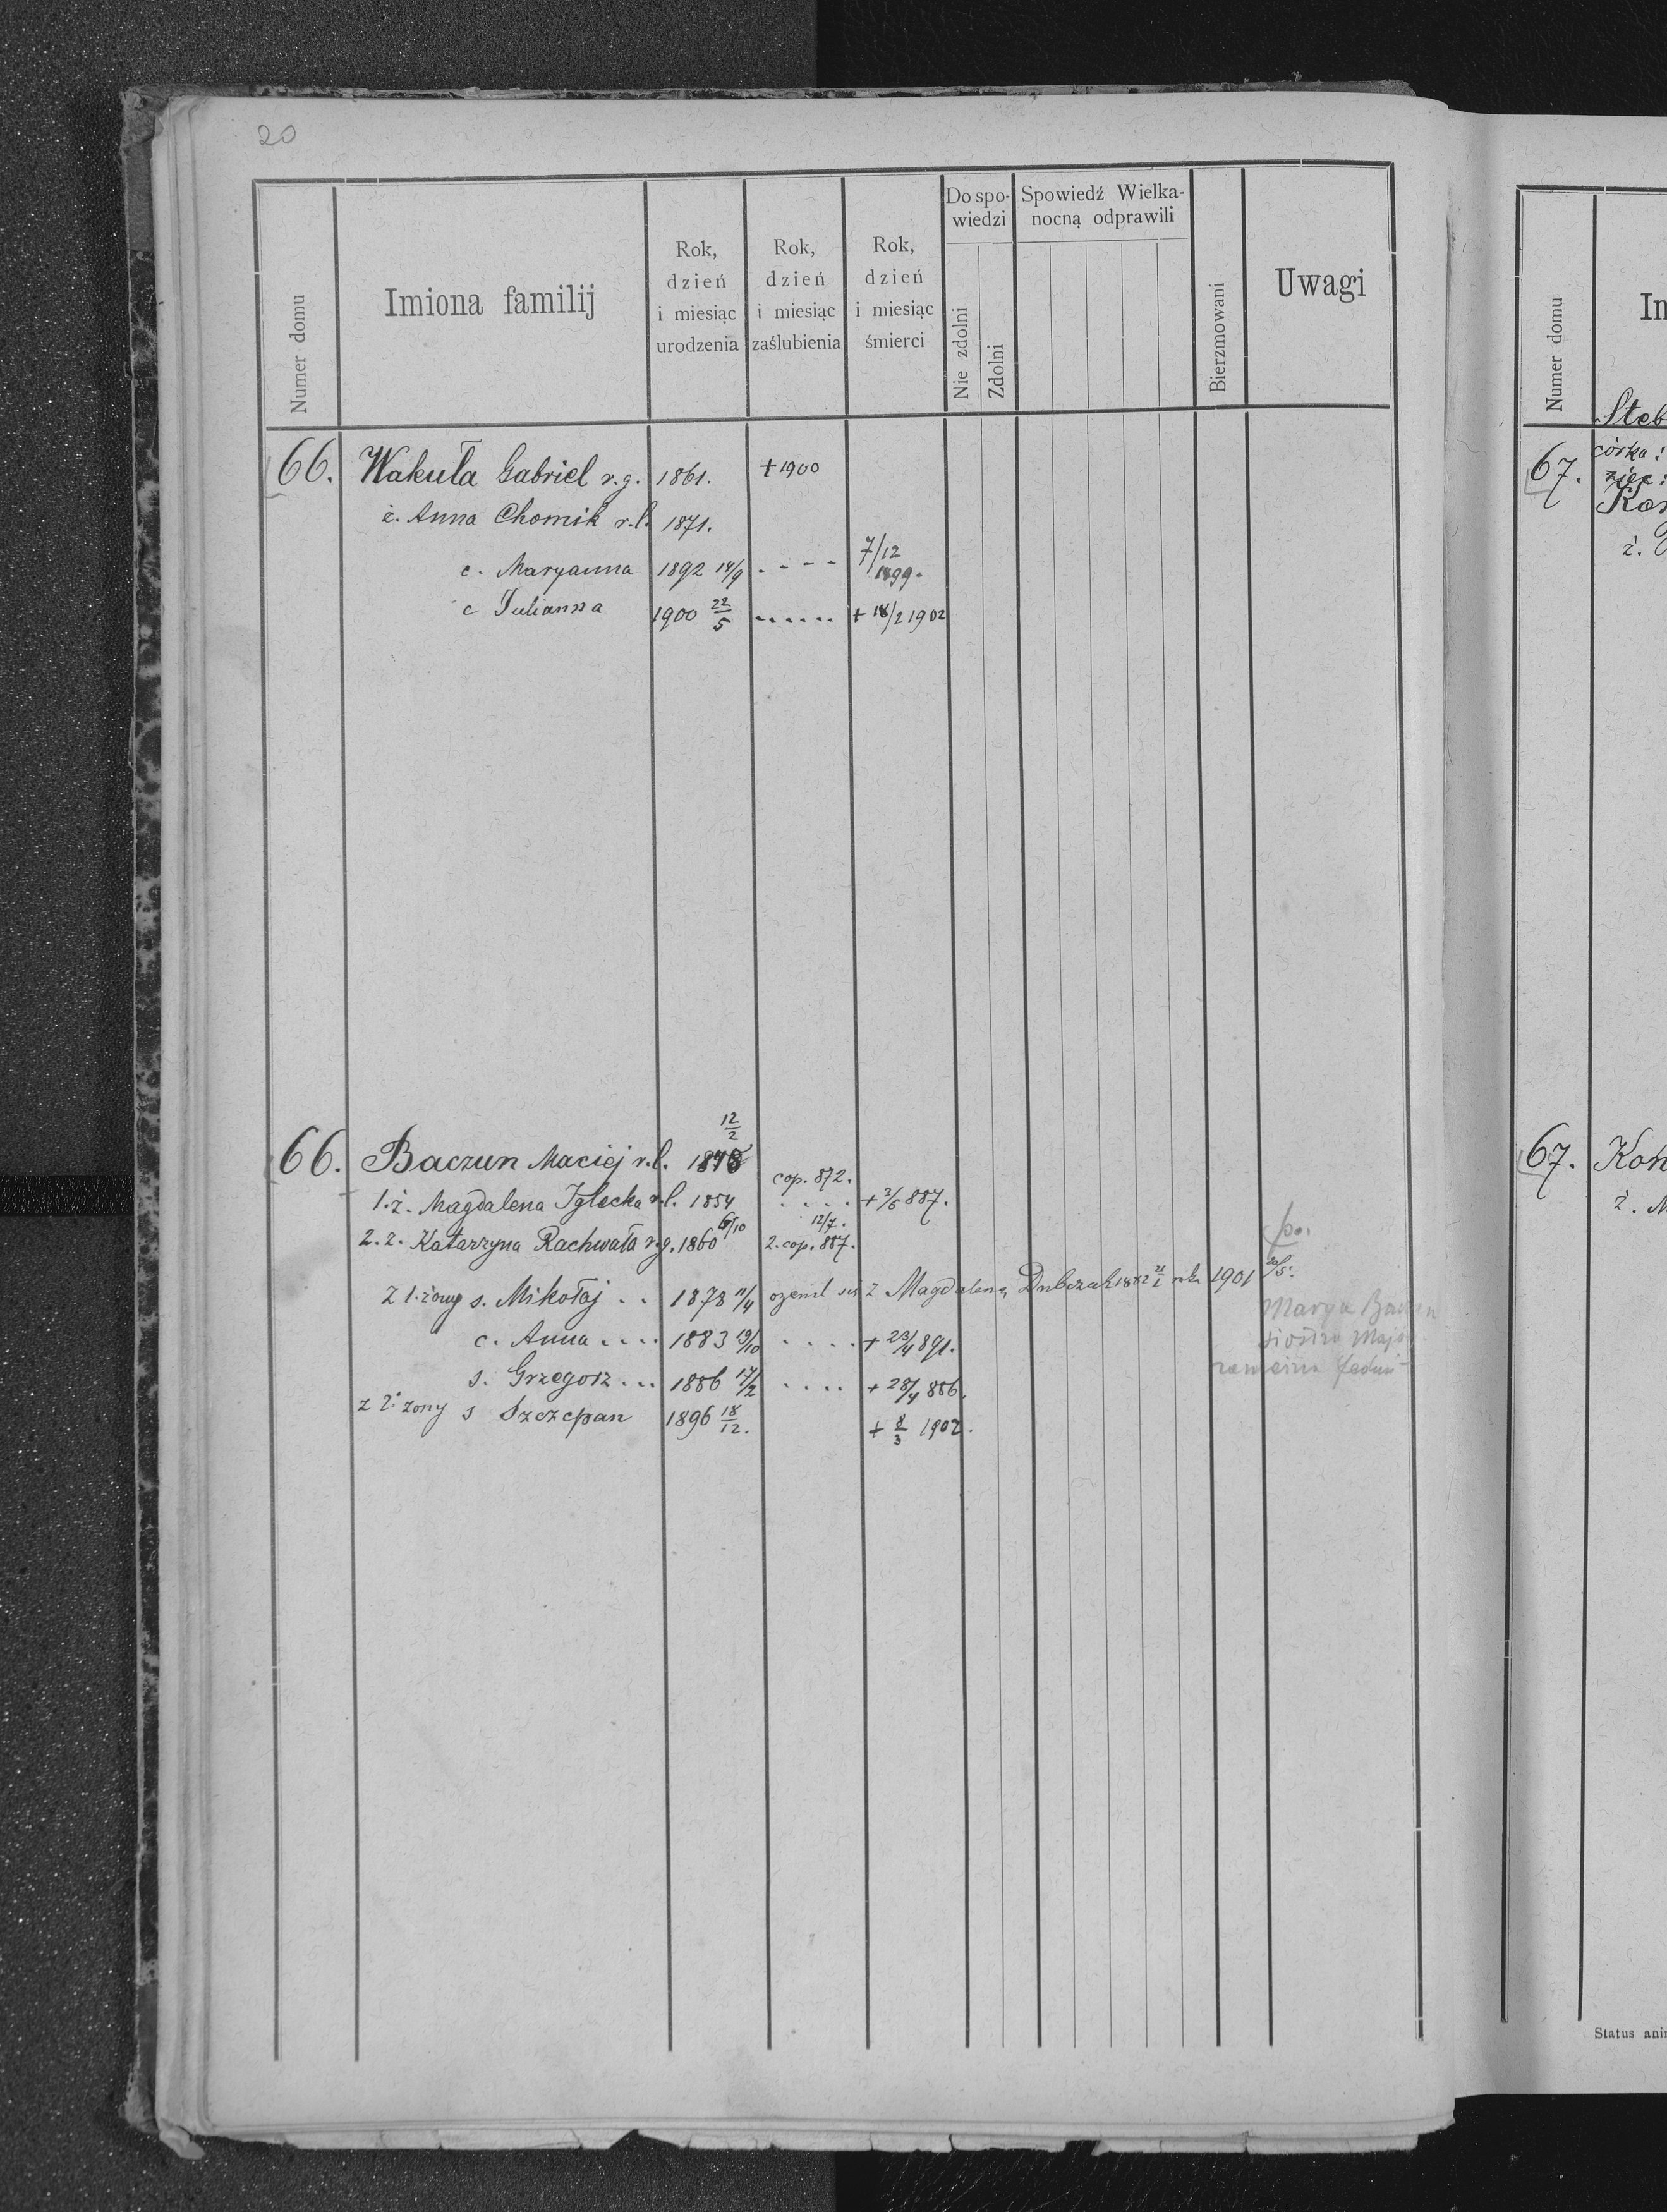 20
Numer domu
Imiona familij
Rok, dzień i miesiąc urodzenia
Rok, dzień i miesiąc zaślubienia
Rok, dzień i miesiąc śmierci
Do spowiedzi
Nie zdolni
Zdolni
Spowiedź Wielkanocną odprawili
Bierzmowani
Uwagi
66. Wakuła Gabriel r.g. 1861. +1900
ż. Anna Chomik r.l. 1871.
c. Maryanna 1892 18/9 - - - - 7/12 1899.
c Julianna 1900 22/5 ...... + 18/2 1902
66. Baczun Maciej r.l. 12/2 cop. 872.
1.ż. Magdalena Iglecka r.l. 1854 .... + 3/6 887.
2.ż. Katarzyna Rachwała r.g. 1860 6/10 2. cop. 12/7. 887.
z 1. żony s. Mikołaj .. 1878 11/4 ożenil się z Magdaleną Dubczak 1882 21/1 roku 1901 20/5.
c. Anna .... 1883 19/10 .... + 23/4 891.
s. Grzegorz ... 1886 17/2 .... + 28/4 886.
z 2. żony s Szczepan 1896 18/12. + 8/3 1902.
po.
Marya
siostra
Numer domu
Steb
67. córka:
zięć:
ż.
67. Koh
ż. M
Status ani